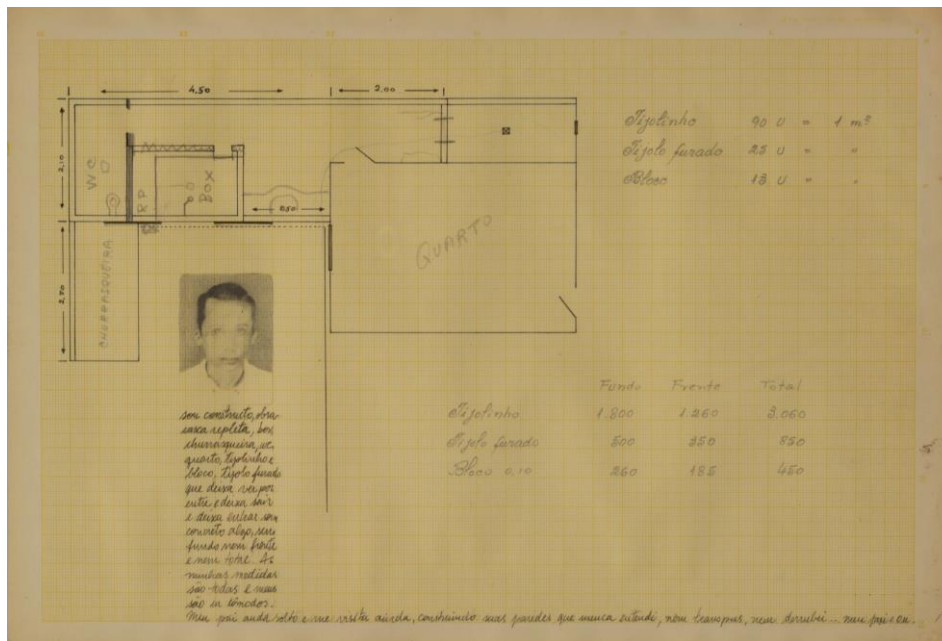 4,50
2,00
Tijolinho 90 U = 1 m²
Tijolo furado 25 U " "
Bloco 13 U " "
2,10
WC
RP
BOX
0,50
QUARTO
CHURRASQUEIRA
2,70
Fundo Frente Total
Tijolinho 1.800 1.260 3.060
Tijolo furado 500 350 850
Bloco 0,10 260 185 450
sou construto, obra
casca repleta, box
churrasqueira, wc,
quarto, tijolinho e
bloco, tijolo furado
que deixa ver por
entre e deixa sair
e deixa entrar sou
concreto algo, sem
fundo nem frente
e nem total. As
minhas medidas
são todas e meus
são in cômodos.
Meu pai anda solto e me visita ainda, construindo suas paredes que nunca entendi, nem transpus, nem derrubei... meu pai sou